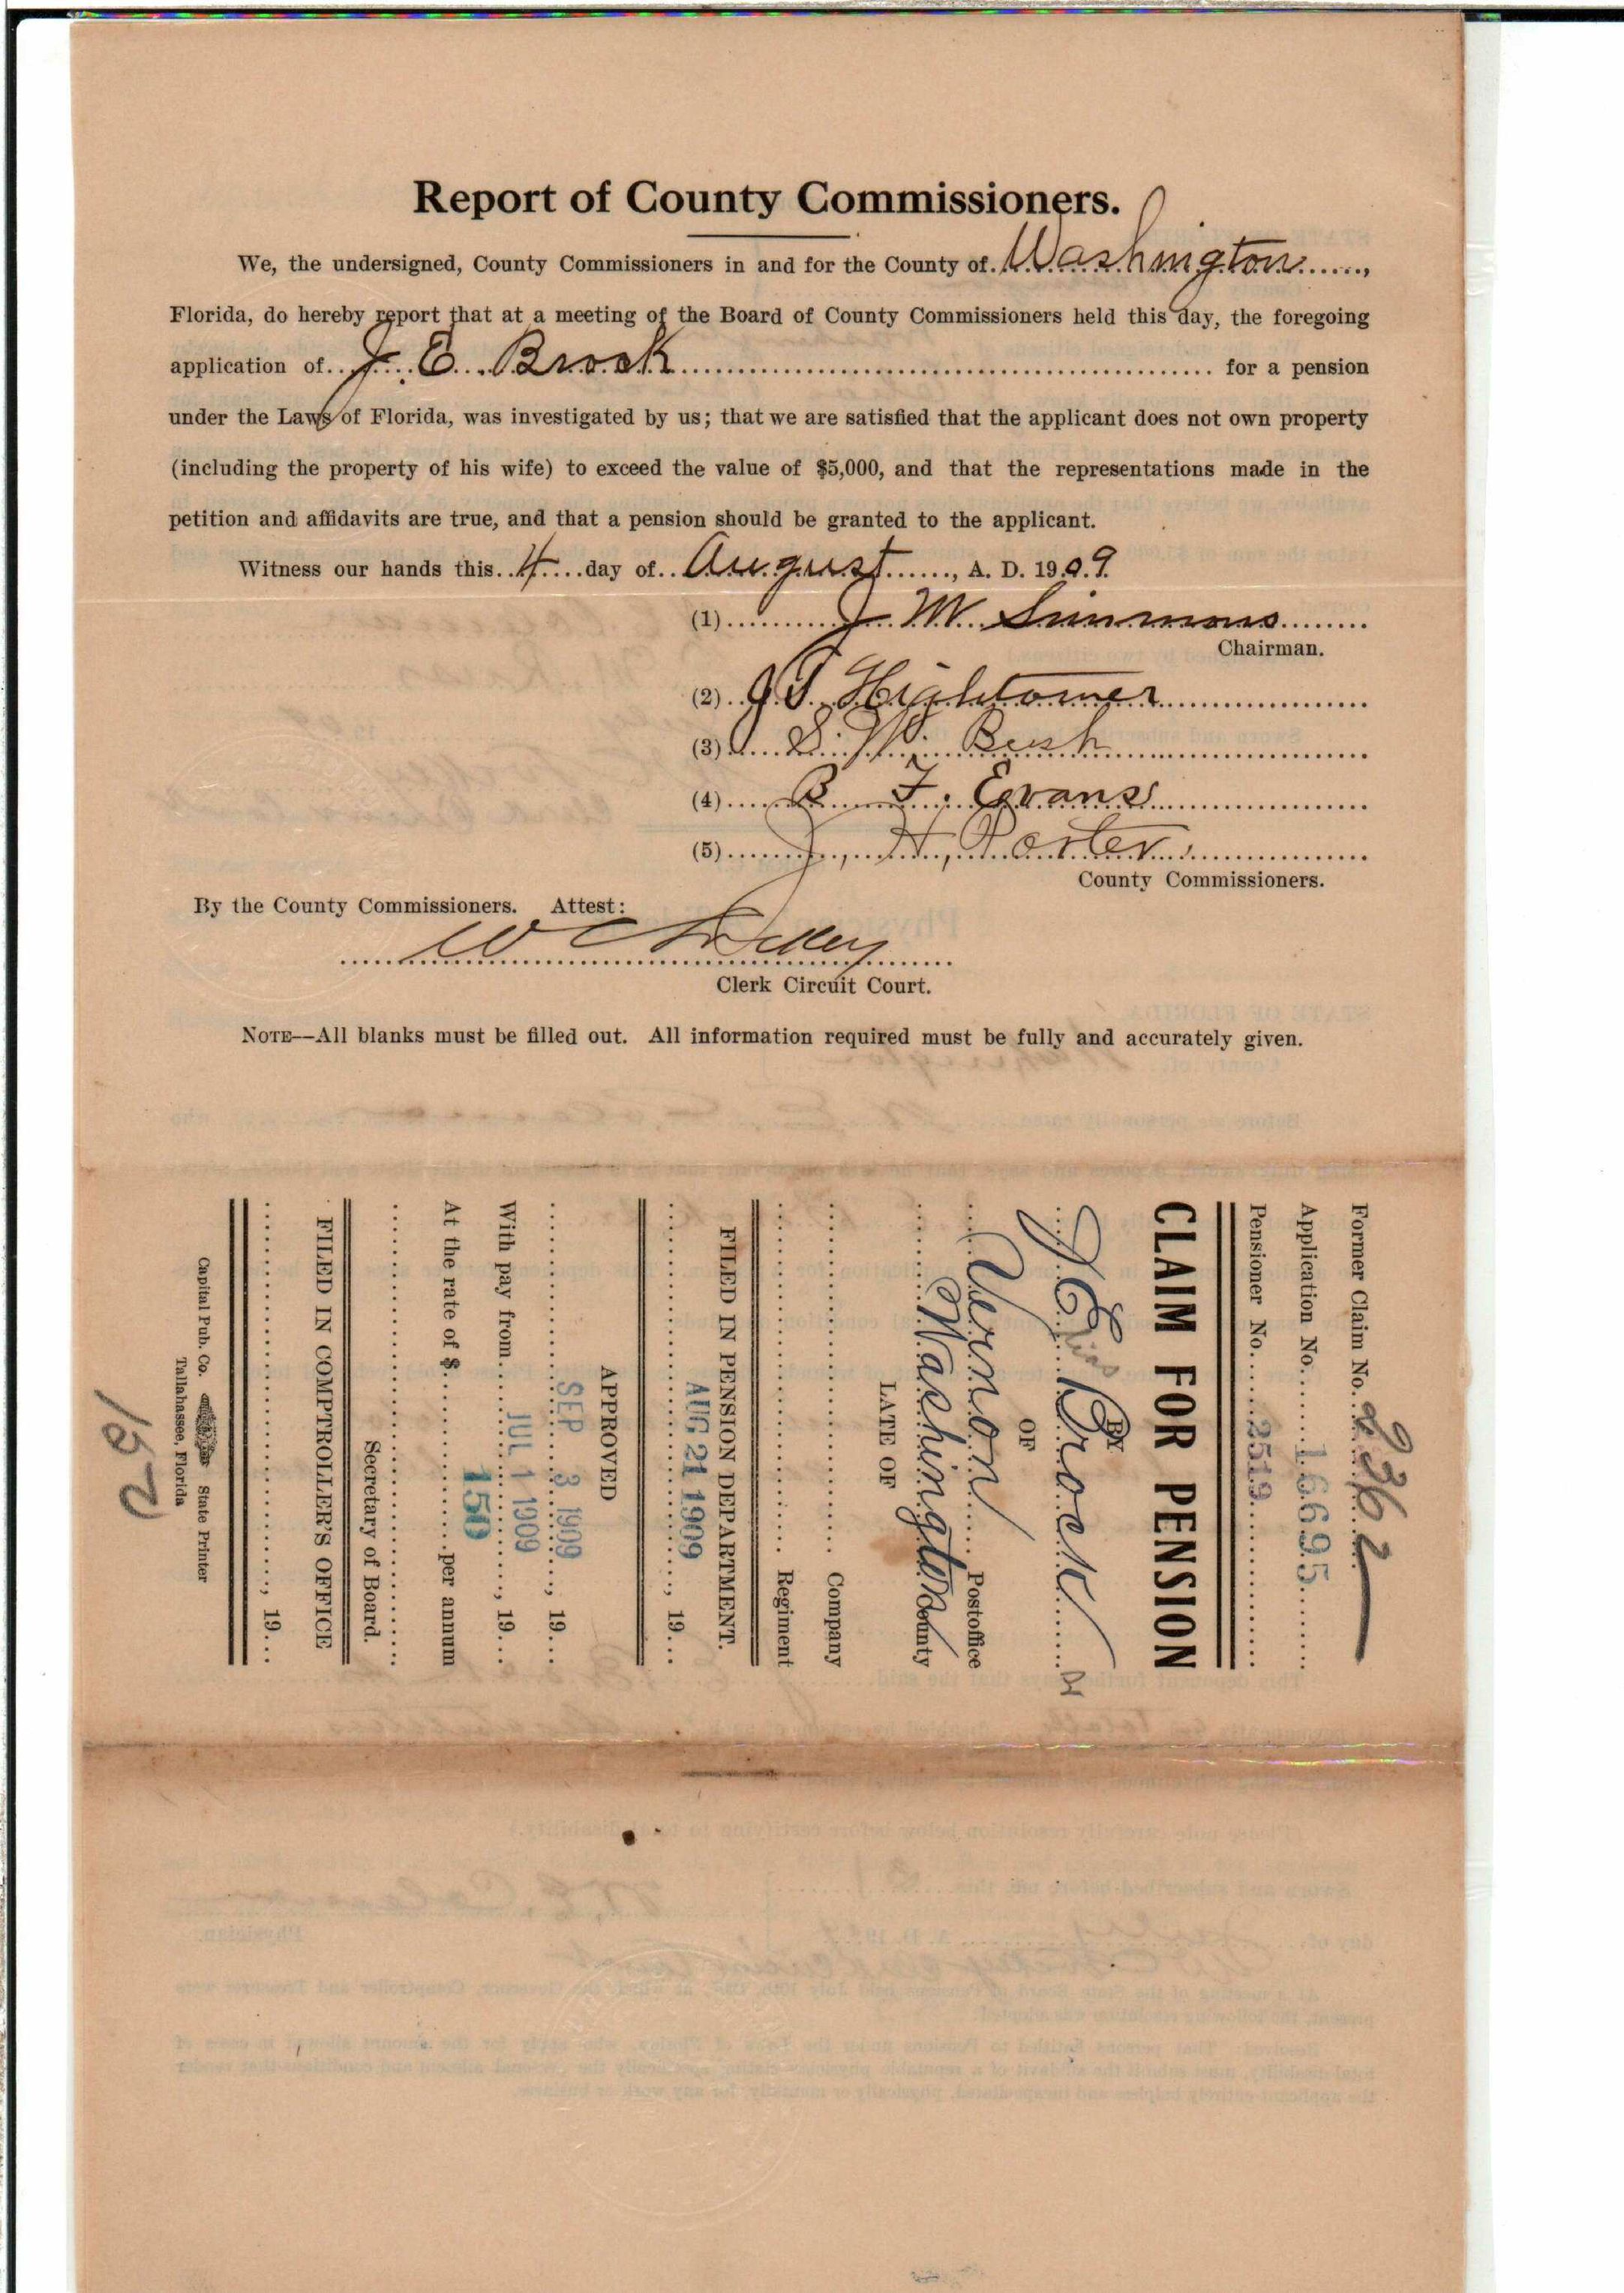 Report of County Commissioners.
We, the undersigned, County Commissioners in and for the County of Washington,
Florida, do hereby report that at a meeting of the Board of County Commissioners held this day, the foregoing
application of J. E. Brock for a pension
under the Laws of Florida, was investigated by us; that we are satisfied that the applicant does not own property
(including the property of his wife) to exceed the value of $5,000, and that the representations made in the
petition and affidavits are true, and that a pension should be granted to the applicant.
Witness our hands this 4 day of August, A. D. 1909.
(1) J W Simmons
Chairman.
(2) J T Hightower
(3) S. W. Bush
(4) B F. Evans
(5) J. H. Porter
County Commissioners.
By the County Commissioners. Attest:
W C
Clerk Circuit Court.
NOTE—All blanks must be filled out. All information required must be fully and accurately given.
Former Claim No. 2362
Application No. 16695
Pensioner No. 2519
CLAIM FOR PENSION
BY
J E Brock
OF
Vernon Postoffice
Washington County
LATE OF
Company
Regiment
FILED IN PENSION DEPARTMENT.
AUG 21 1909
, 19
APPROVED
SEP 3 1909
, 19
With pay from JUL 1 1909, 19
At the rate of $ 150 per annum
Secretary of Board.
FILED IN COMPTROLLER'S OFFICE
, 19
Capital Pub. Co. State Printer
Tallahassee, Florida